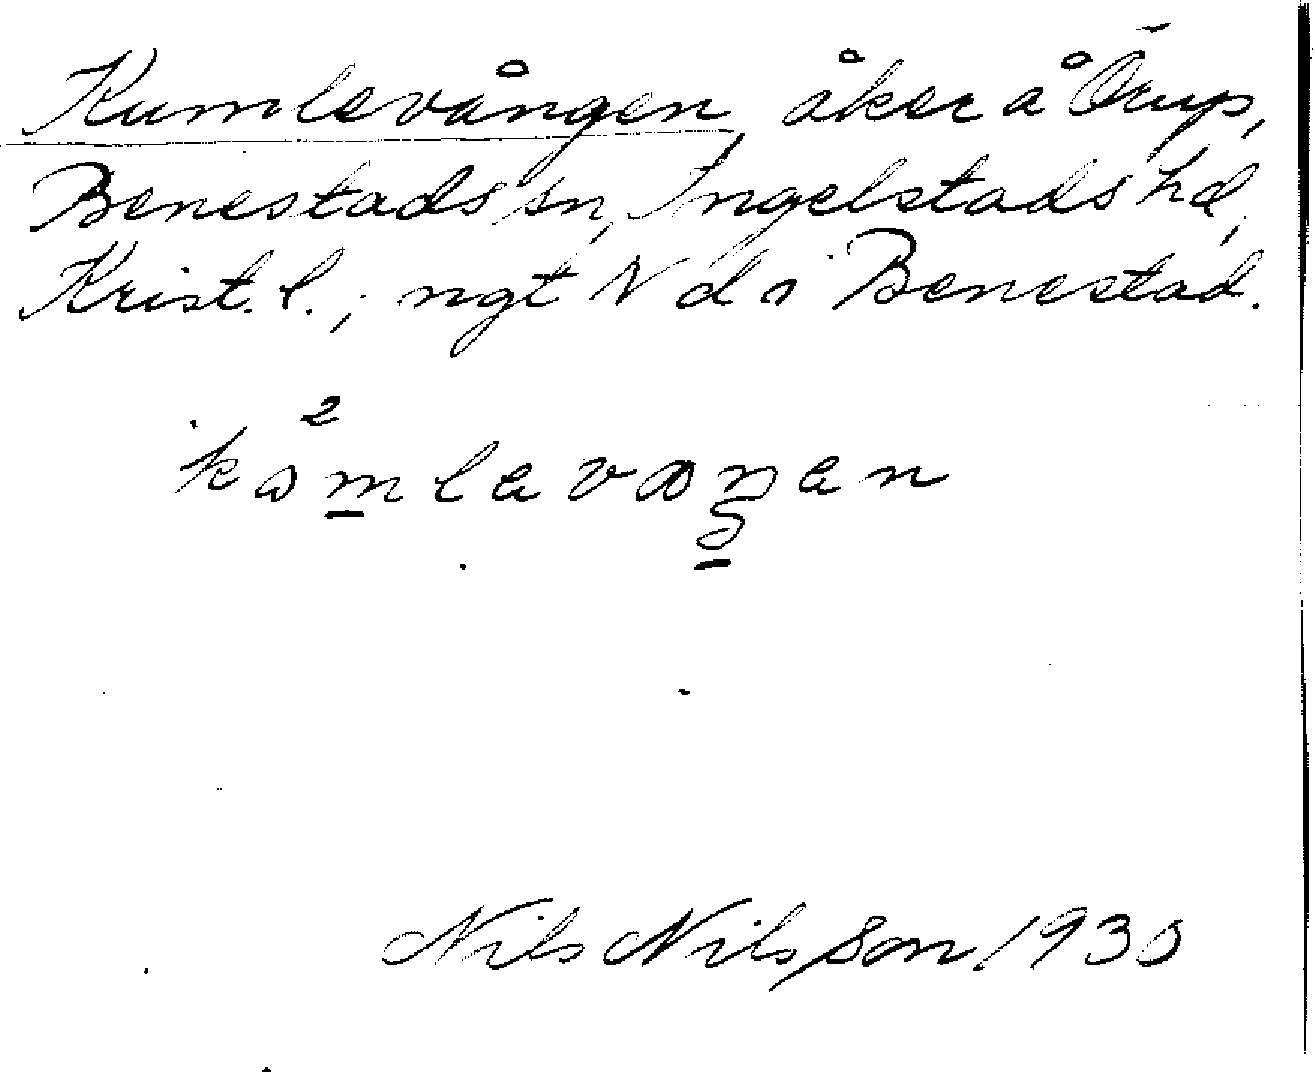 Kumlevången, åker å Örup,
Benestads sn, Ingelstads hd,
Krist. l., ngt N d i Benestad.
Nils Nilsson 1930